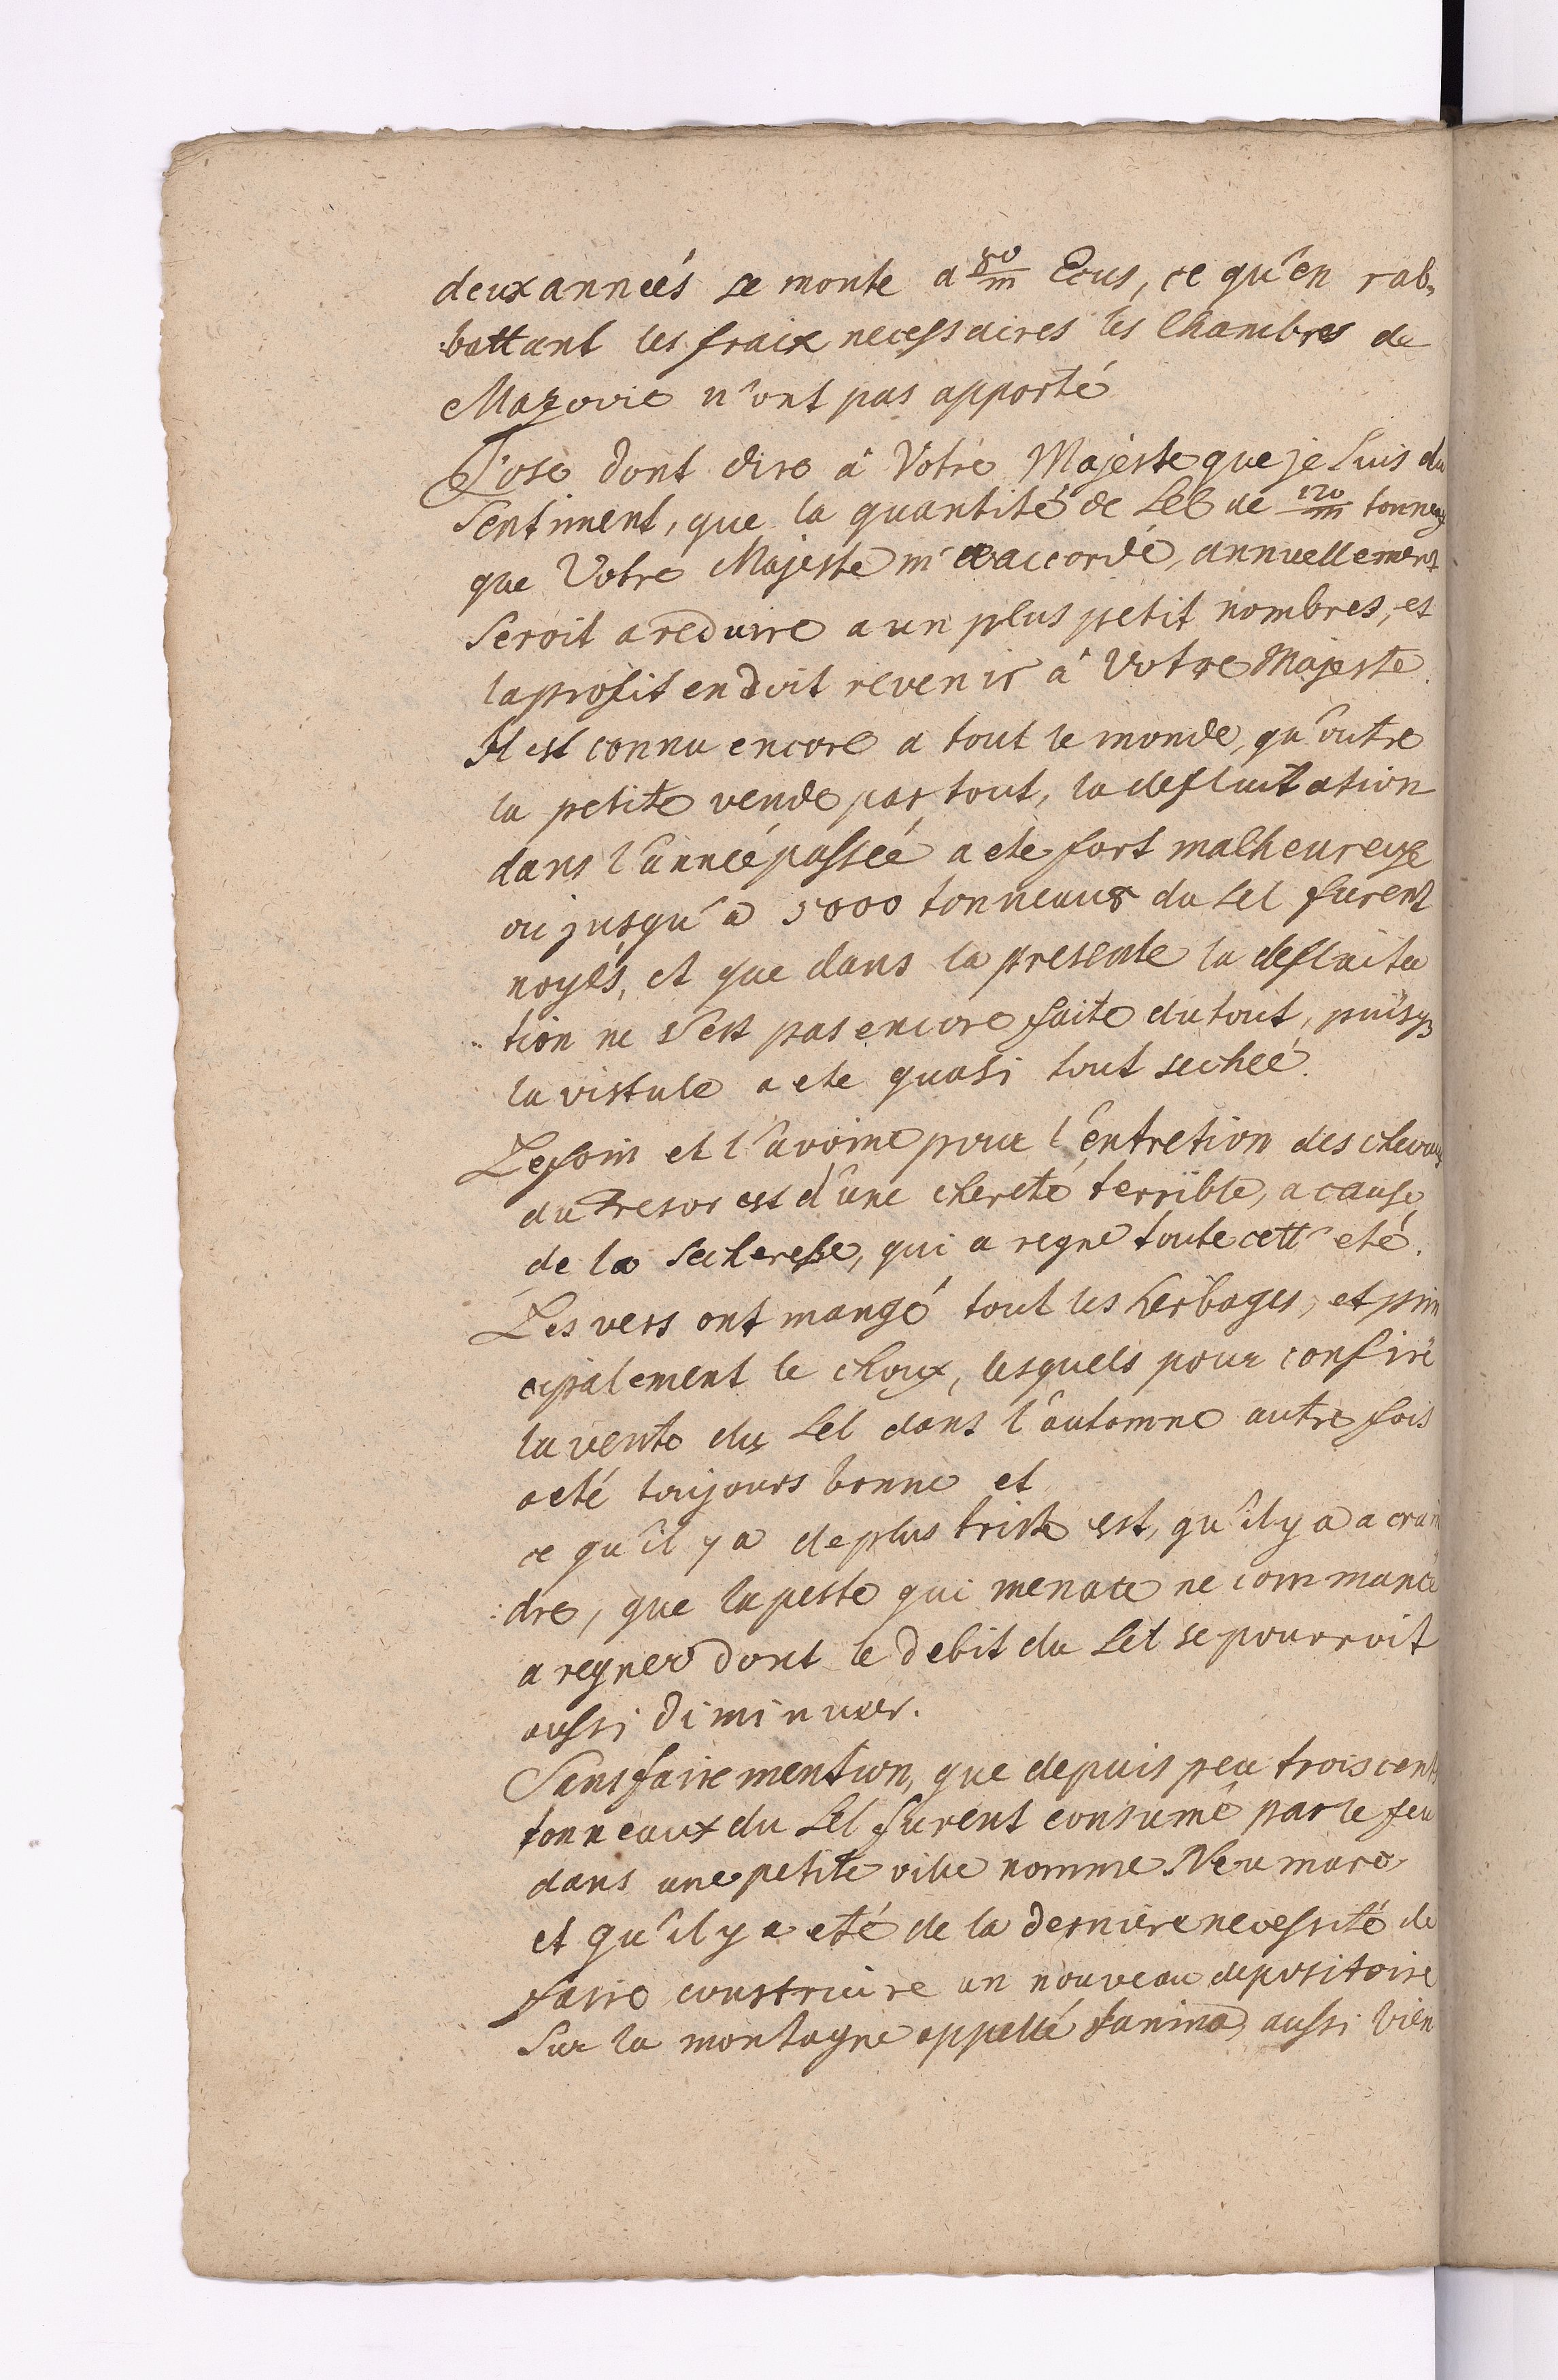 deux anneés se monte a 80/m Ecus, ce qu'en rab-
battant les fraix necessaires les Chambres de
Mazovie n'ont pas apporté
J'ose dont dire à Votre Majeste que je suis du
sentiment, que la quantité de Sel de 120/m tonneaux
que Votre Majeste m'a accordé, annuellement
seroit a reduire a un plus petit nombres, et
la profit en doit revenir à Votre Majeste.
Il est connu encore a tout le monde, qu'outre
la petite vende par tout, la defluitation
dans l'anneé passeé a ete fort malheureuse
ou jusqu'a 5000 tonneaux du Sel furent
noyés, et que dans la presente la defluita
tion ne s'est pas encore faite du tout, puisq
la vistule a ete quasi tout secheé.
Le foin et l'avoine pour l'entretion des chevaux
du Tresor est d'une chereté terrible, a cause
de la secheresse, qui a regne toute cett' eté.
Les vers ont mangé tout les herbages, et prin
cipalement le choux, lesquels pour confire
la vente du Sel dans l'automne autre fois
a eté toujours bonne et
ce qu'il y a de plus triste est, qu'il y a a crain
:dre, que la peste qui menace ne commance
a regner dont le debit du Sel se pourroit
aussi diminuer.
Sans faire mention, que depuis peu trois cents
tonneaux du Sel furent consumé par le feu
dans une petite ville nomme Neumarc
et qu'il y a eté de la derniere necessité de
faire construire un nouveau depositoire
Sur la montagne appellé Janina, aussi bien